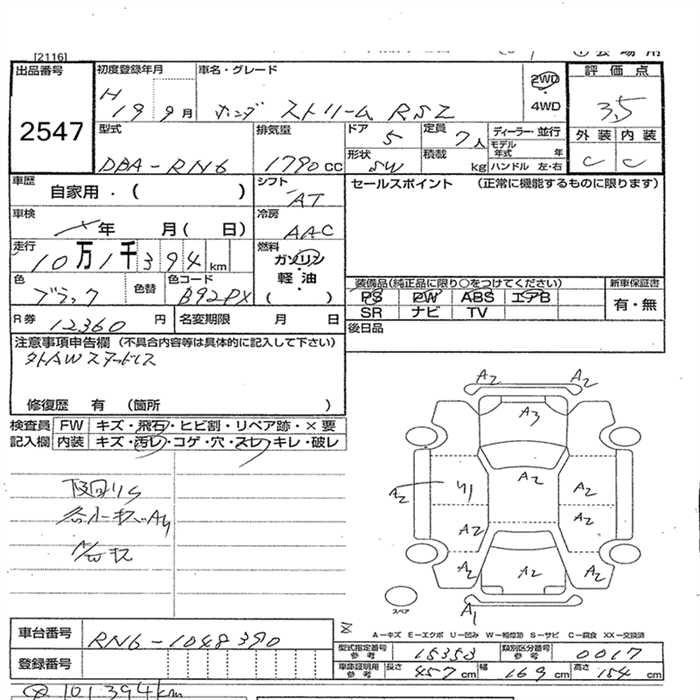 [2116]
出品番号
2547
初度登録年月
H 19 9月
車名・グレード
ホンダ ストリーム RSZ
2WD
4WD
評価点
3.5
外装 内装
C C
型式
DBA-RN6
排気量
1790 CC
ドア 5
定員 7人
形状 SW
積載 kg
ディーラー・並行
モデル年式 年
ハンドル 左・右
車歴
自家用・( )
シフト
AT
セールスポイント (正常に機能するものに限ります)
車検
年 月( 日)
冷房
AAC
走行
10万1千394 km
燃料
ガソリン
軽・油
( ・ )
色
ブラック
色替
色コード
B92PX
装備品(純正品に限り○をつけてください)
新車保証書
PS PW ABS エアB
SR ナビ TV
有・無
R券 12360 円
名変期限 月 日
後日品
注意事項申告欄 (不具合内容等は具体的に記入して下さい)
外AWスタッドレス
修復歴 有 (箇所 )
検査員記入欄
FW キズ・飛石・ヒビ割・リペア跡・×要
内装 キズ・汚レ・コゲ・穴・スレ・キレ・破レ
A2 A2
A3
A2 U1 A2 A2
A2 A2
A2 A2 A2
A1
スペア
A-キズ E-エクボ U-凹み W-補修跡 S-サビ C-腐食 XX-交換済
車台番号
RN6-1048390
登録番号
型式指定番号 参考 15353
類別区分番号 参考 0017
車庫証明用 参考 長さ 457 cm 幅 169 cm 高さ 154 cm
101,394km